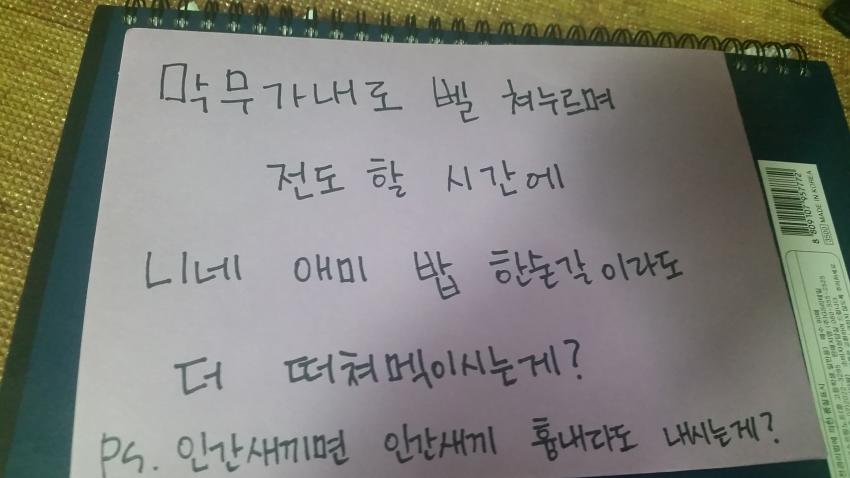 막무가내로 벨 쳐누르며
전도 할 시간에
니네 애미 밥 한숟갈이라도
더 떠쳐멕이시는게?
PS. 인간새끼면 인간새끼 흉내라도 내시는게?
8 809107 957772
3500 MADE IN KOREA